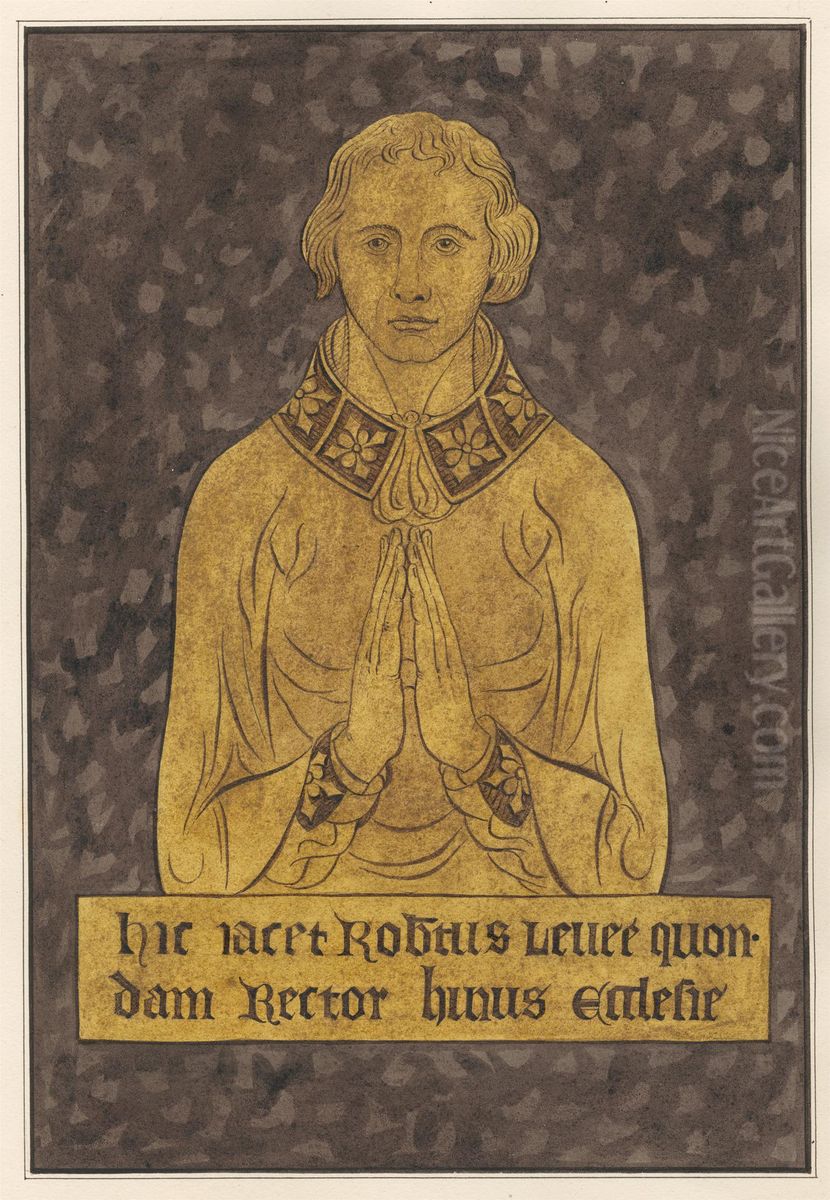 hic iacet Robertus Leveé quon·
dam Rector huius Ecclesie
NiceArtGallery.com